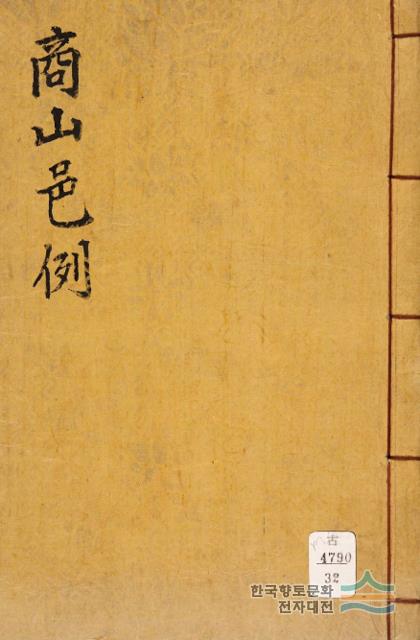 商山邑例
古
4790
32
한국향토문화
전자대전